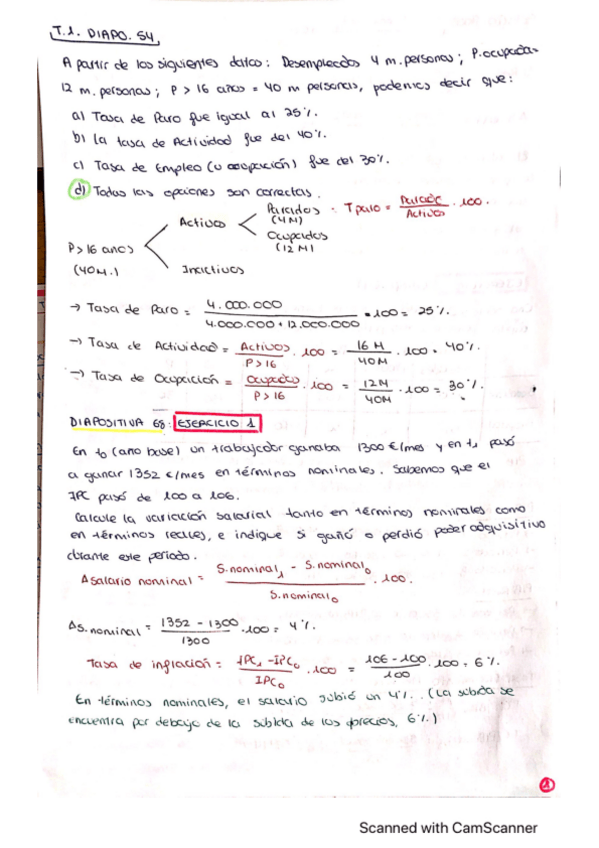 T.1. DIAPO. 54
A partir de los siguientes datos: Desempleados 4 m. personas; P. ocupada
12 m. personas; P > 16 años = 40 m personas, podemos decir que:
a) Tasa de Paro fue igual al 25%.
b) La tasa de Actividad fue del 40%.
c) Tasa de Empleo (u ocupación) fue del 30%.
d) Todas las opciones son correctas.
P > 16 años (40M.)
Activos
Parados (4M)
Ocupados (12M)
Inactivos
T paro = Parados / Activos · 100.
→ Tasa de Paro = 4.000.000 / 4.000.000 + 12.000.000 · 100 = 25%.
→ Tasa de Actividad = Activos / P > 16 · 100 = 16M / 40M · 100 = 40%.
→ Tasa de Ocupación = Ocupados / P > 16 · 100 = 12M / 40M · 100 = 30%.
DIAPOSITIVA 68: EJERCICIO 1
En t0 (año base) un trabajador ganaba 1300 €/mes y en t1 pasó
a ganar 1352 €/mes en términos nominales. Sabemos que el
IPC pasó de 100 a 106.
Calcule la variación salarial tanto en términos nominales como
en términos reales, e indique si ganó o perdió poder adquisitivo
durante este periodo.
Δ salario nominal = S. nominal1 - S. nominal0 / S. nominal0 · 100.
Δ S. nominal = 1352 - 1300 / 1300 · 100 = 4%.
Tasa de inflación = IPC1 - IPC0 / IPC0 · 100 = 106 - 100 / 100 · 100 = 6%.
En términos nominales, el salario subió un 4%. (La subida se
encuentra por debajo de la subida de los precios, 6%.)
1
Scanned with CamScanner